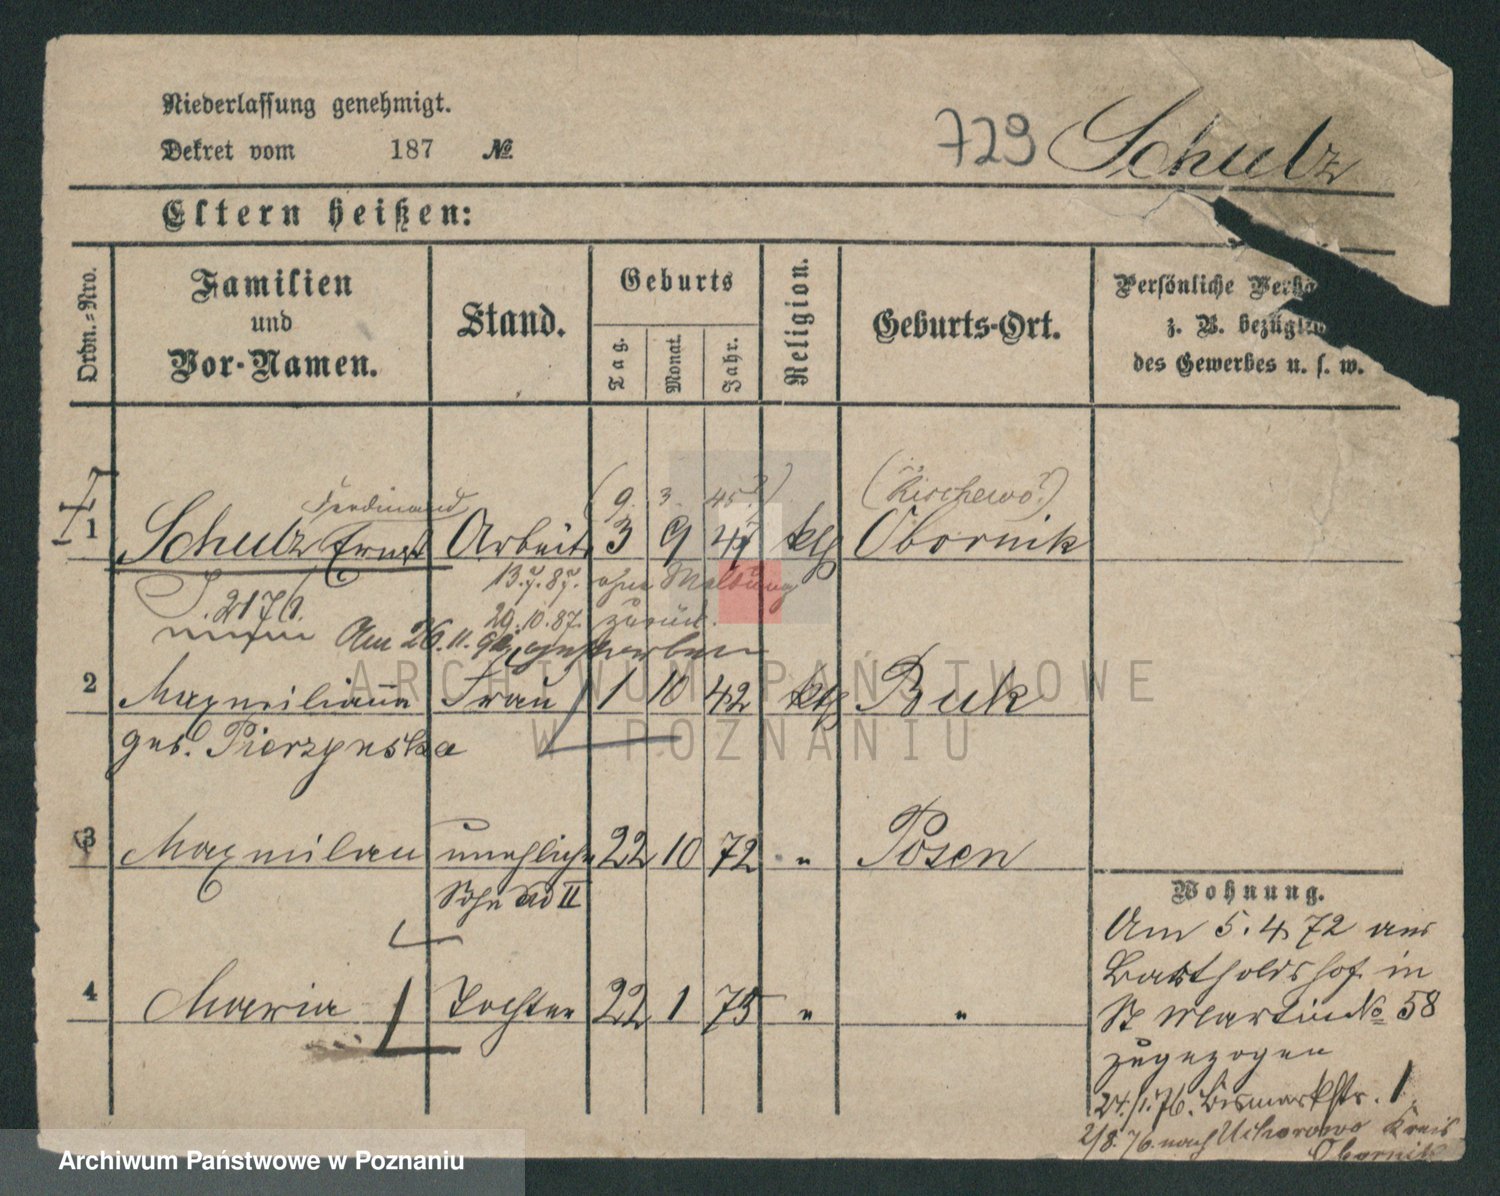 Niederlassung genehmigt.
Dekret vom 187 №
729 Schulz
Eltern heißen:
Ordn.-Nro.
Familien
und
Vor-Namen.
Stand.
Geburts
Tag.
Monat.
Jahr.
Religion.
Geburts-Ort.
Persönliche
z. B.
des Gewerbes u. s. w.
Ferdinand (9. 3. 45?) (Kischewo?)
1 Schulz Ernst Arbeit 3 9 47 kth Obornik
13.7.87. ohne Meldung
J. 2176.
29.10.87. zurück.
Am 26.11. gestorben
2 Maxmilianna Frau 1 10 42 kth Buk
geb. Pierzynska
3 Maxmilian unehliche 22 10 72 " Posen
Sohn ad II
4 Maria Tochter 22 1 75 " "
Wohnung.
Am 5.4.72 aus
Bartholdshof in
St Martin № 58
zugezogen
24./1.76. Bismarckstr. 1
2/8.76. nach Uchorowo Kreis
Obornik
ARCHIWUM PAŃSTWOWE
W POZNANIU
Archiwum Państwowe w Poznaniu